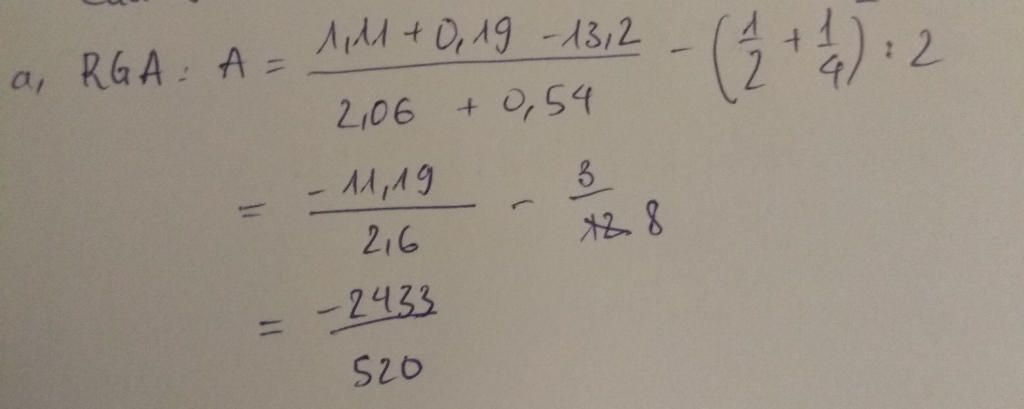 a, RGA : A = (1,11 + 0,19 - 13,2)/(2,06 + 0,54) - (1/2 + 1/4) : 2
= -11,19/2,6 - 3/8
= -2433/520